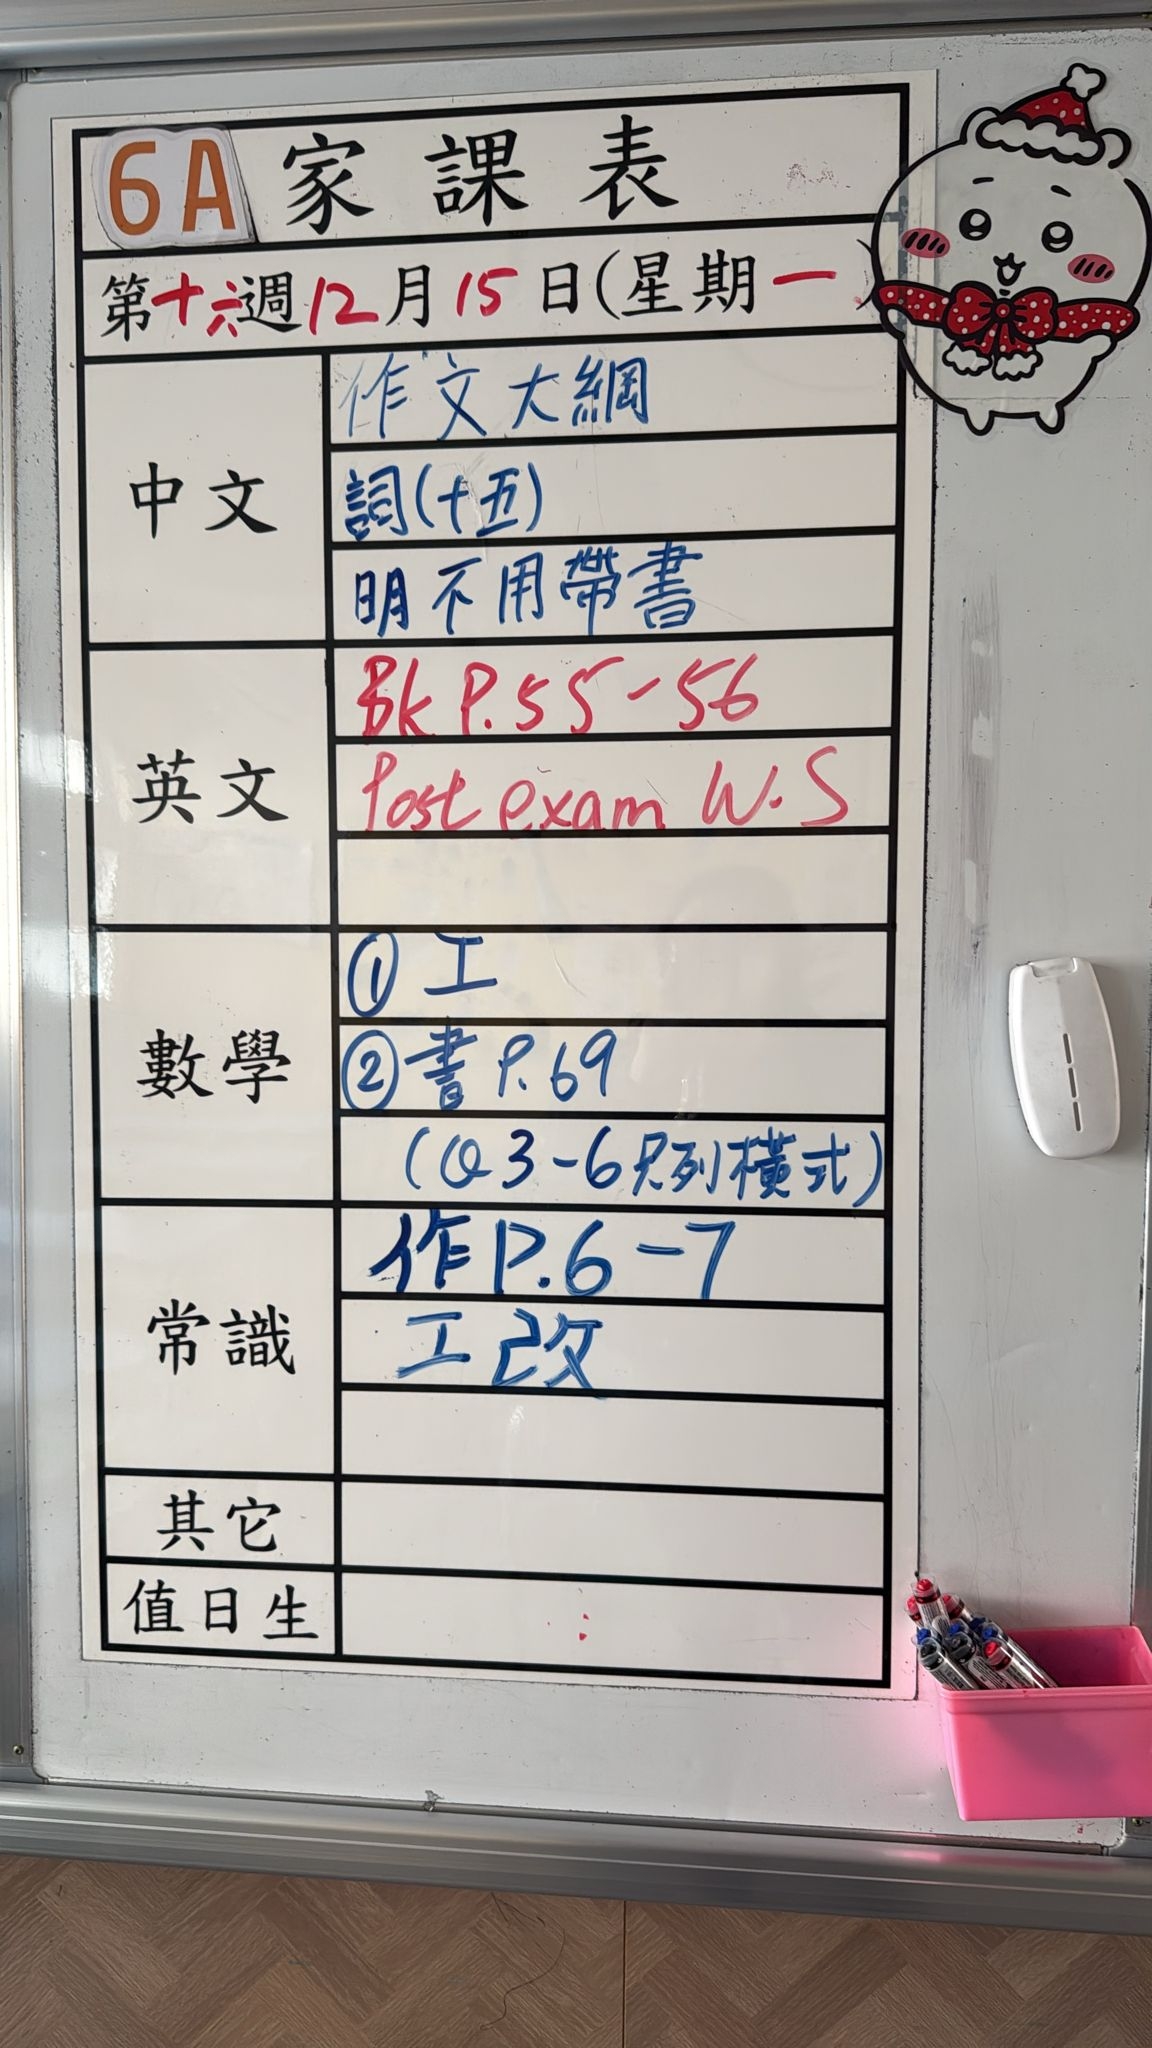 6A 家課表
第十六週12月15日(星期一)
中文
作文大綱
詞(十五)
明不用帶書
英文
Bk P.55-56
Post exam W.S
數學
① 工
② 書 P.69
(Q3-6只列橫式)
常識
作P.6-7
工改
其它
值日生